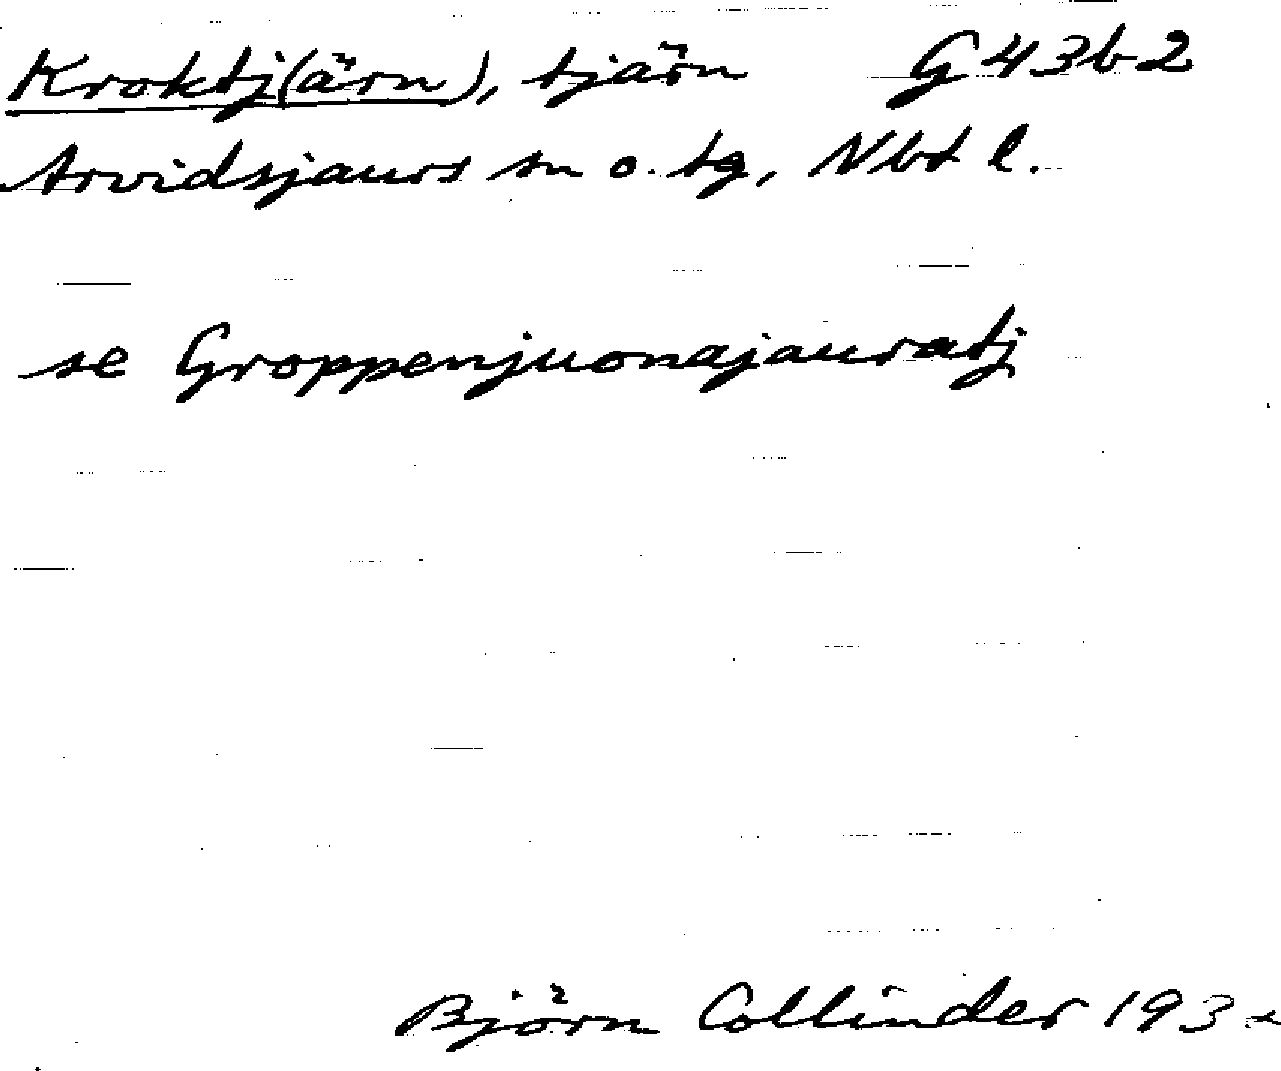 Kroktj(ärn), tjärn G43b2
Arvidsjaurs sn o. tg, Nbt l.
se Groppenjuonajauratj
Björn Collinder 193